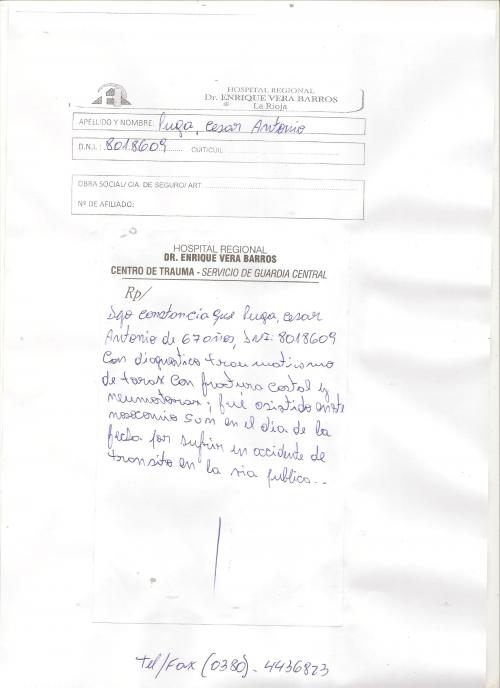 HOSPITAL REGIONAL
Dr. ENRIQUE VERA BARROS
La Rioja
APELLIDO Y NOMBRE: Puga, Cesar Antonio
D.N.I.: 8018609 CUIT/CUIL
OBRA SOCIAL/ CIA. DE SEGURO/ ART
Nº DE AFILIADO:
HOSPITAL REGIONAL
DR. ENRIQUE VERA BARROS
CENTRO DE TRAUMA - SERVICIO DE GUARDIA CENTRAL
Rp/
Dejo constancia que Puga, Cesar
Antonio de 67 años, DNI: 8018609
Con diagnostico traumatismo
de torax con fractura costal y
neumotorax; fué asistido en este
nosocomio en el dia de la
fecha por sufrir un accidente de
transito en la via publica..
Tel/Fax (0380) - 4436823